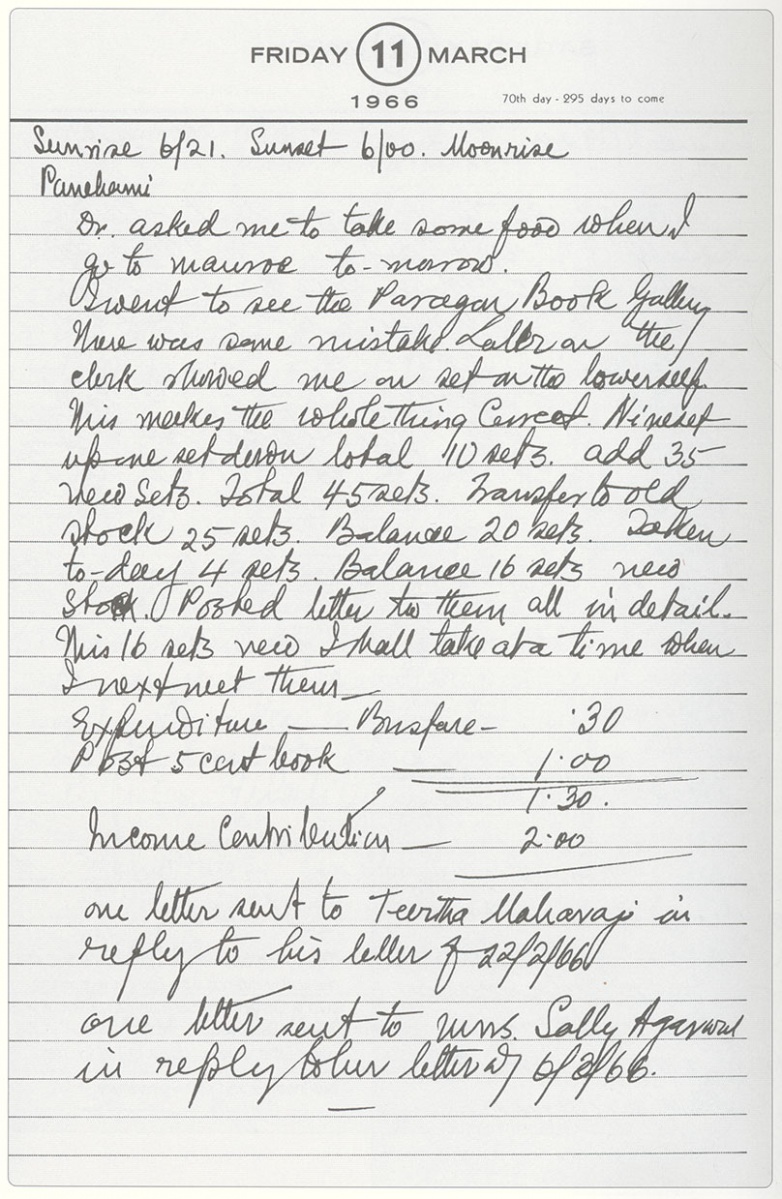 FRIDAY 11 MARCH
1966
70th day - 295 days to come
Sunrise 6/21. Sunset 6/00. Moonrise
Panchami
Dr. asked me to take some food when I
go to to-morrow.
I went to see the Paragon Book Gallery
There was some mistake. Later on the
clerk showed me on set on the lowerself.
This makes the whole thing Correct. Nine set
up one set down total 10 sets. add 35
new sets. Total 45 sets. Transfer to old
stock 25 sets. Balance 20 sets. Taken
to-day 4 sets. Balance 16 sets new
stock. Posted letter to them all in detail.
This 16 sets new I shall take at a time when
I next meet them—
Expenditure — Busfare - .30
Post 5 cent book — 1.00
1.30.
Income Contribution — 2.00
one letter sent to Teertha Maharaj in
reply to his letter of 22/2/66
one letter sent to mrs. Sally Agarwal
in reply to her letter of 6/3/66.